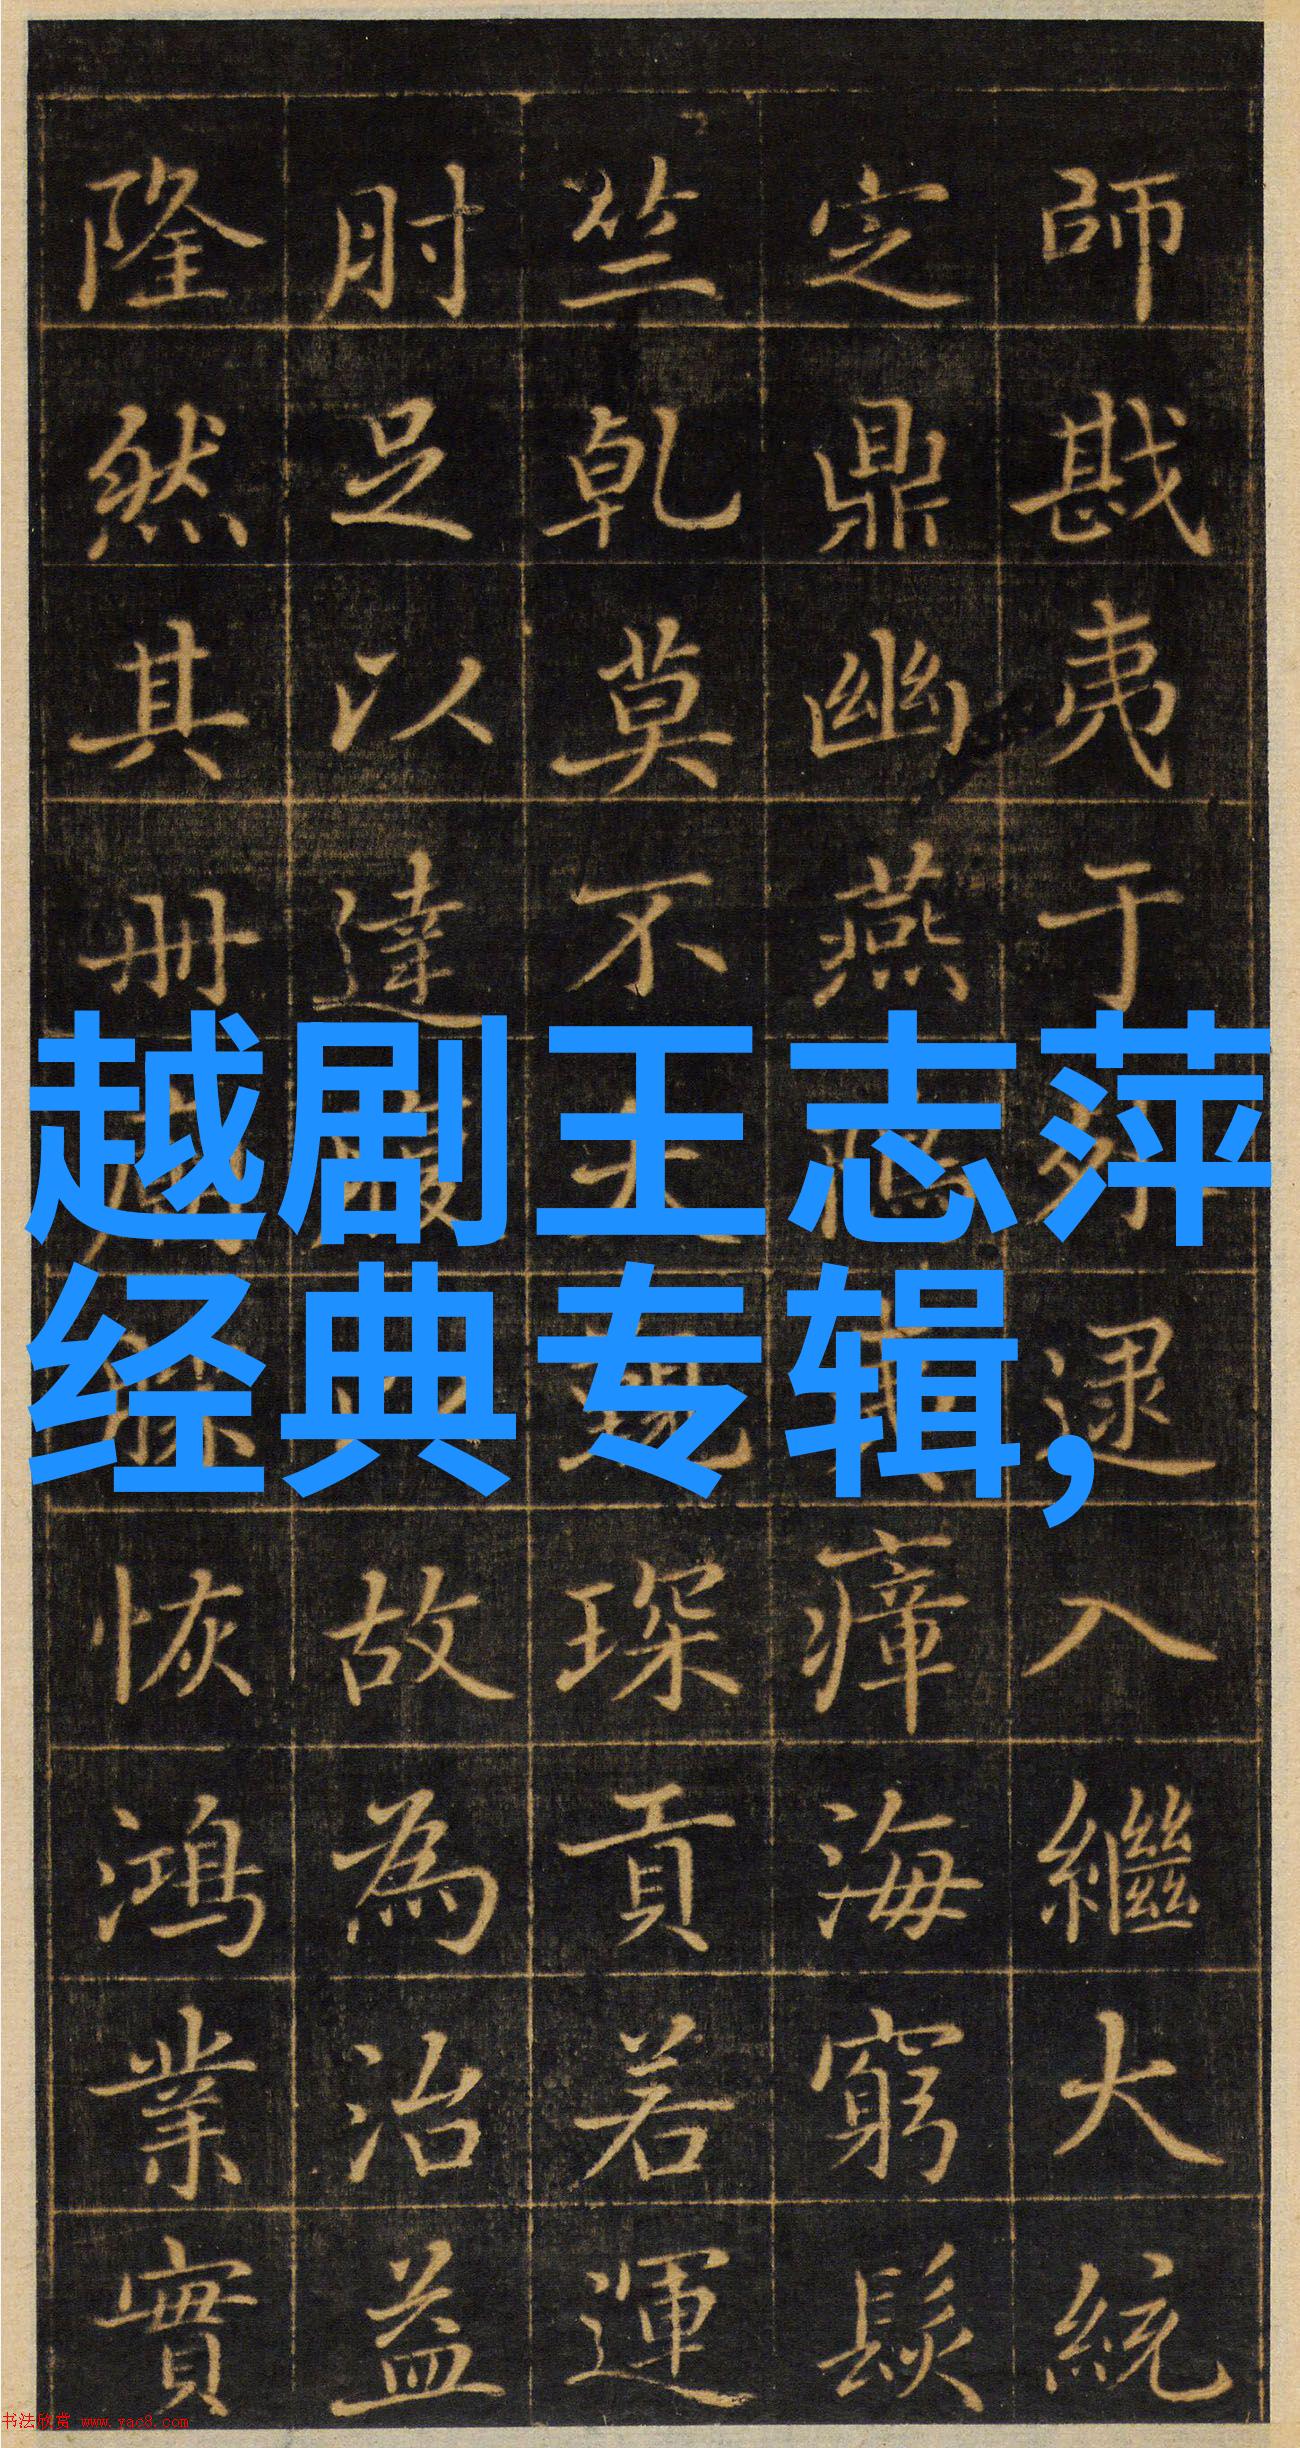 越剧王志萍
经典专辑,
師戡夷于逮入繼大統
定鼎幽燕瘴海窮髮
竺乾莫不琛貢若運
肘足以達故為治益
隆然其冊恢鴻業實
书法欣赏 www.yac8.com